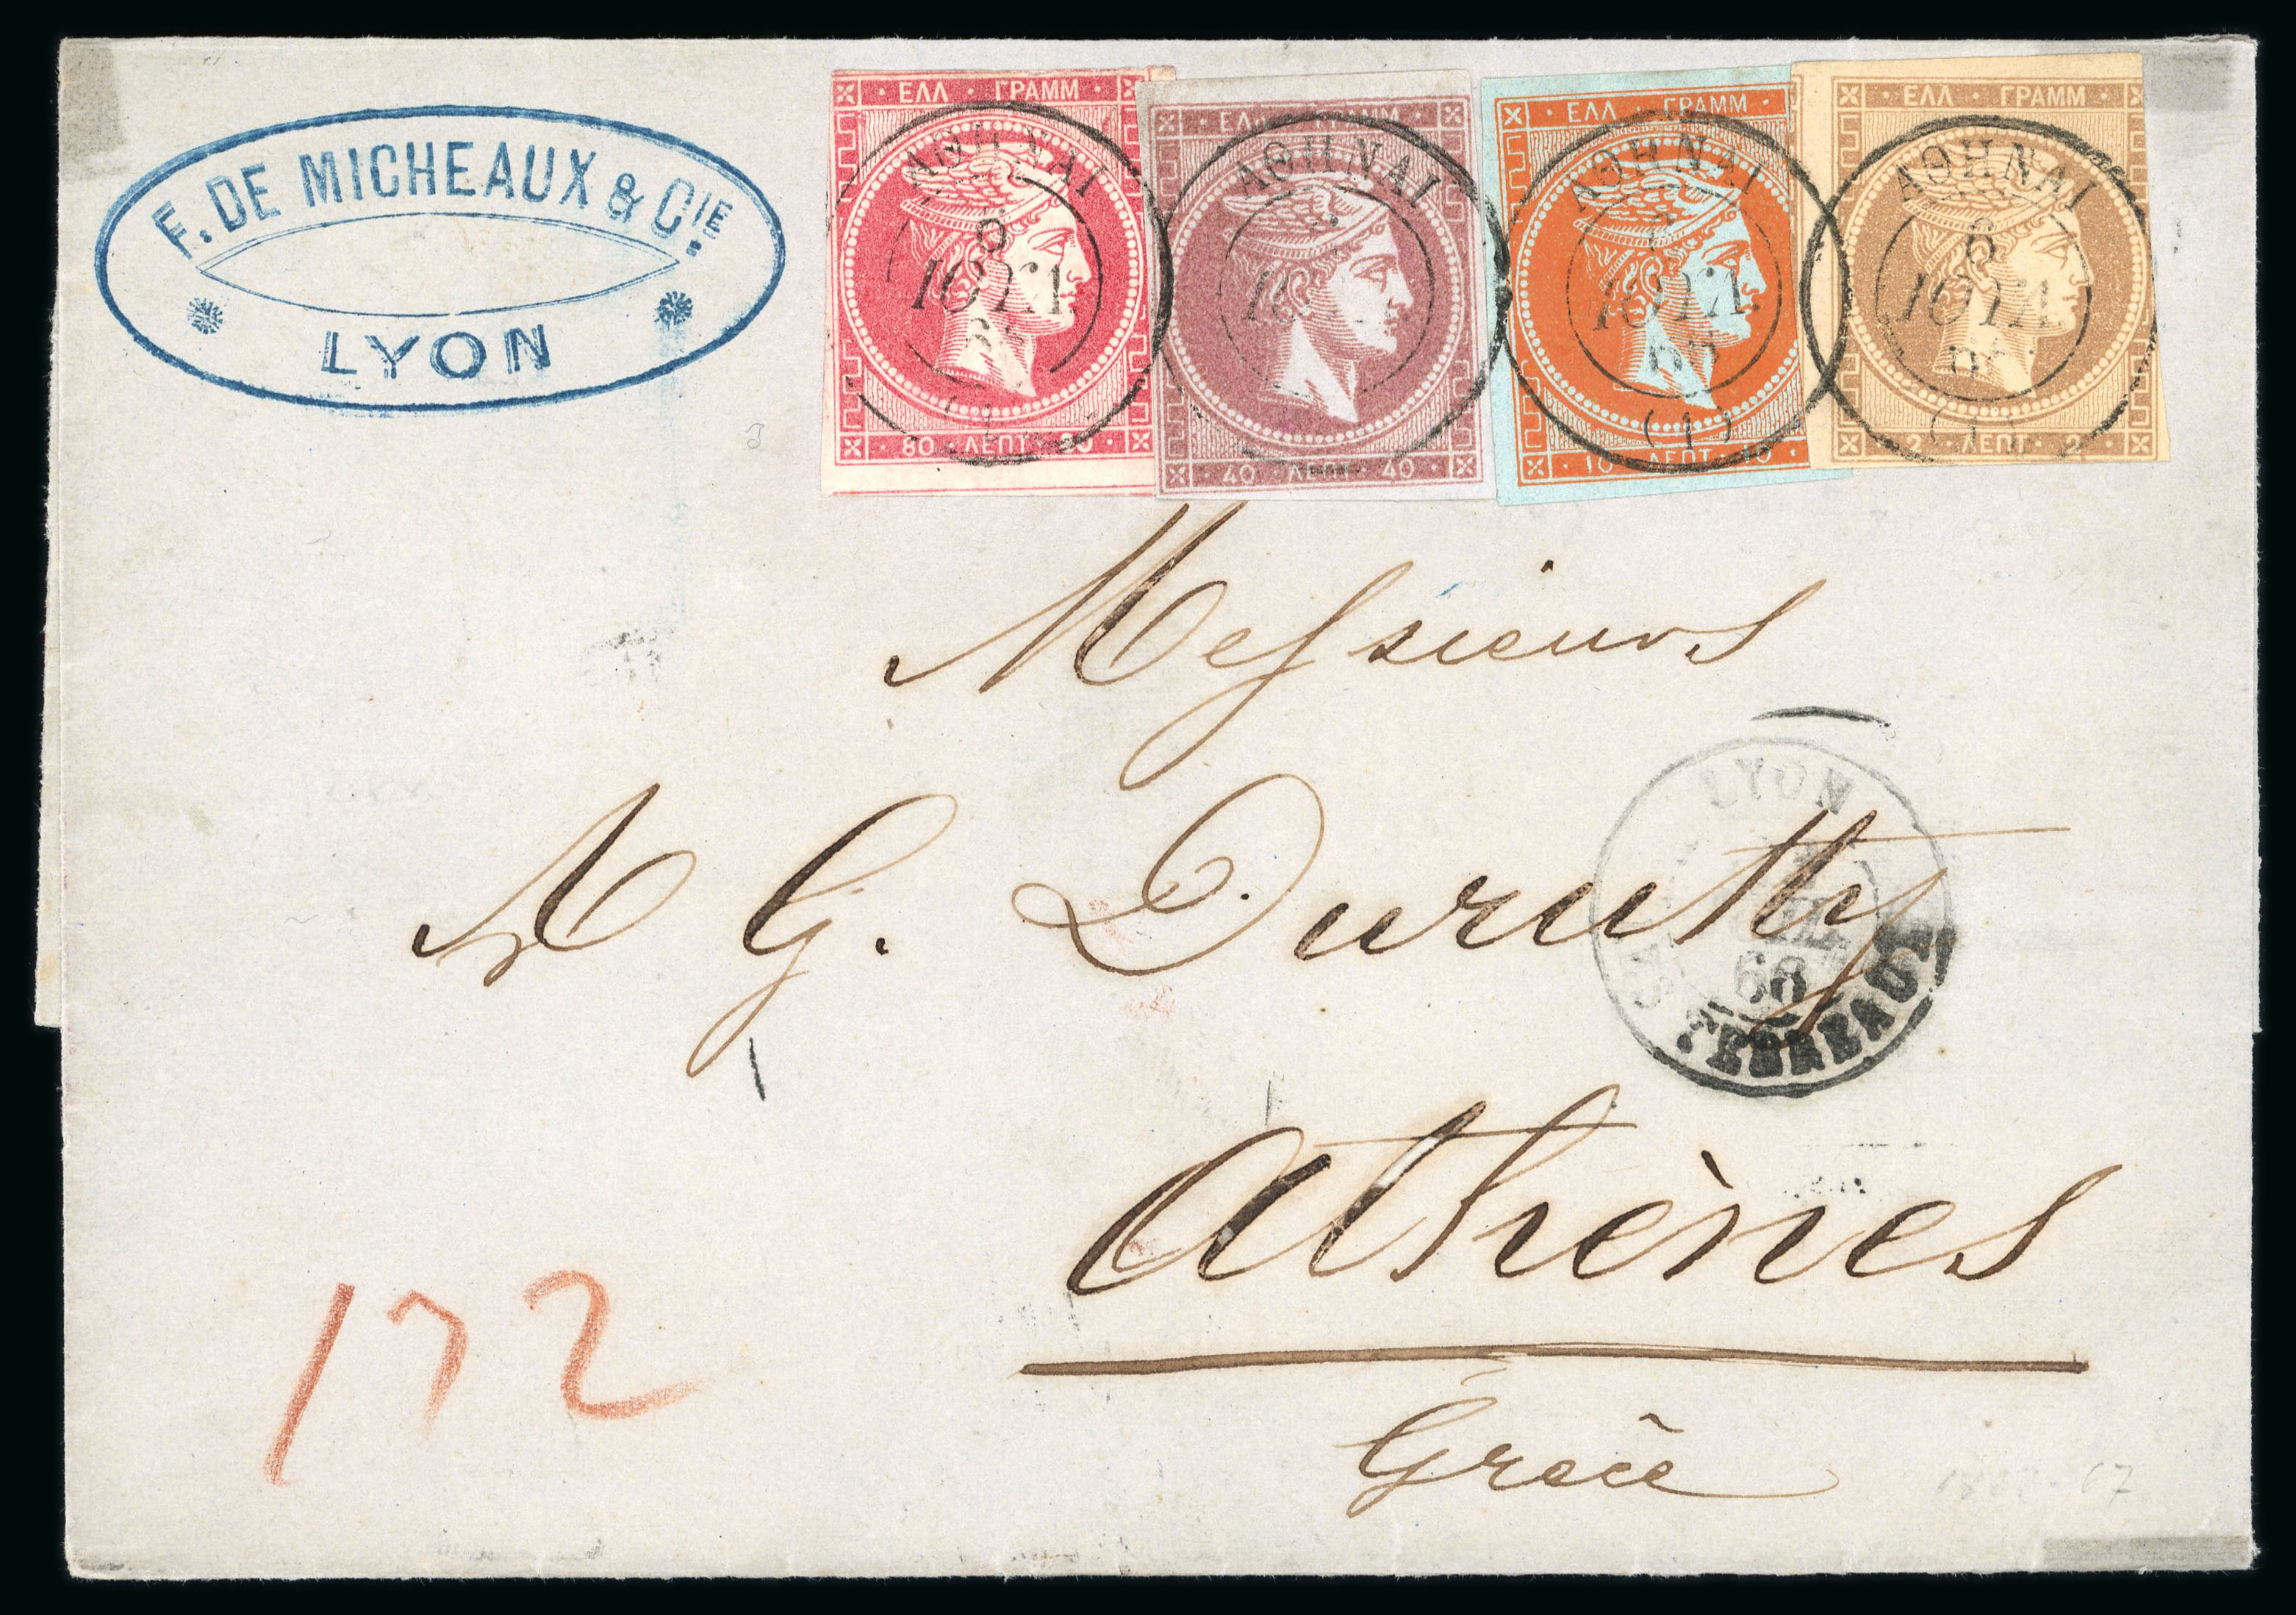 F. DE MICHEAUX & CIE.
LYON
ΕΛΛ · ΓΡΑΜΜ
80 · ΛΕΠΤ · 80
ΑΘΗΝΑΙ
8
ΙΟΥΛ
ΕΛΛ · ΓΡΑΜΜ
40 · ΛΕΠΤ · 40
ΑΘΗΝΑΙ
ΕΛΛ · ΓΡΑΜΜ
10 · ΛΕΠΤ · 10
ΑΘΗΝΑΙ
ΙΟΥΛ.
66
(1)
ΕΛΛ · ΓΡΑΜΜ
2 · ΛΕΠΤ · 2
ΑΘΗΝΑΙ
8
ΙΟΥΛ.
66
(1)
Messieurs
A G. Duruthy
Athènes
Grèce
LYON
66
TERREAUX
172